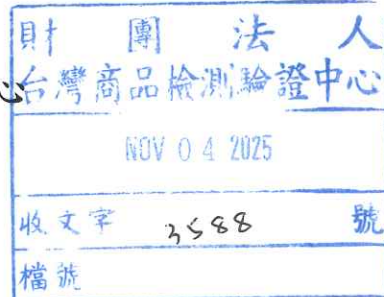 財團法人
心台灣商品檢測驗證中心
NOV 04 2025
收文字 3588 號
檔號